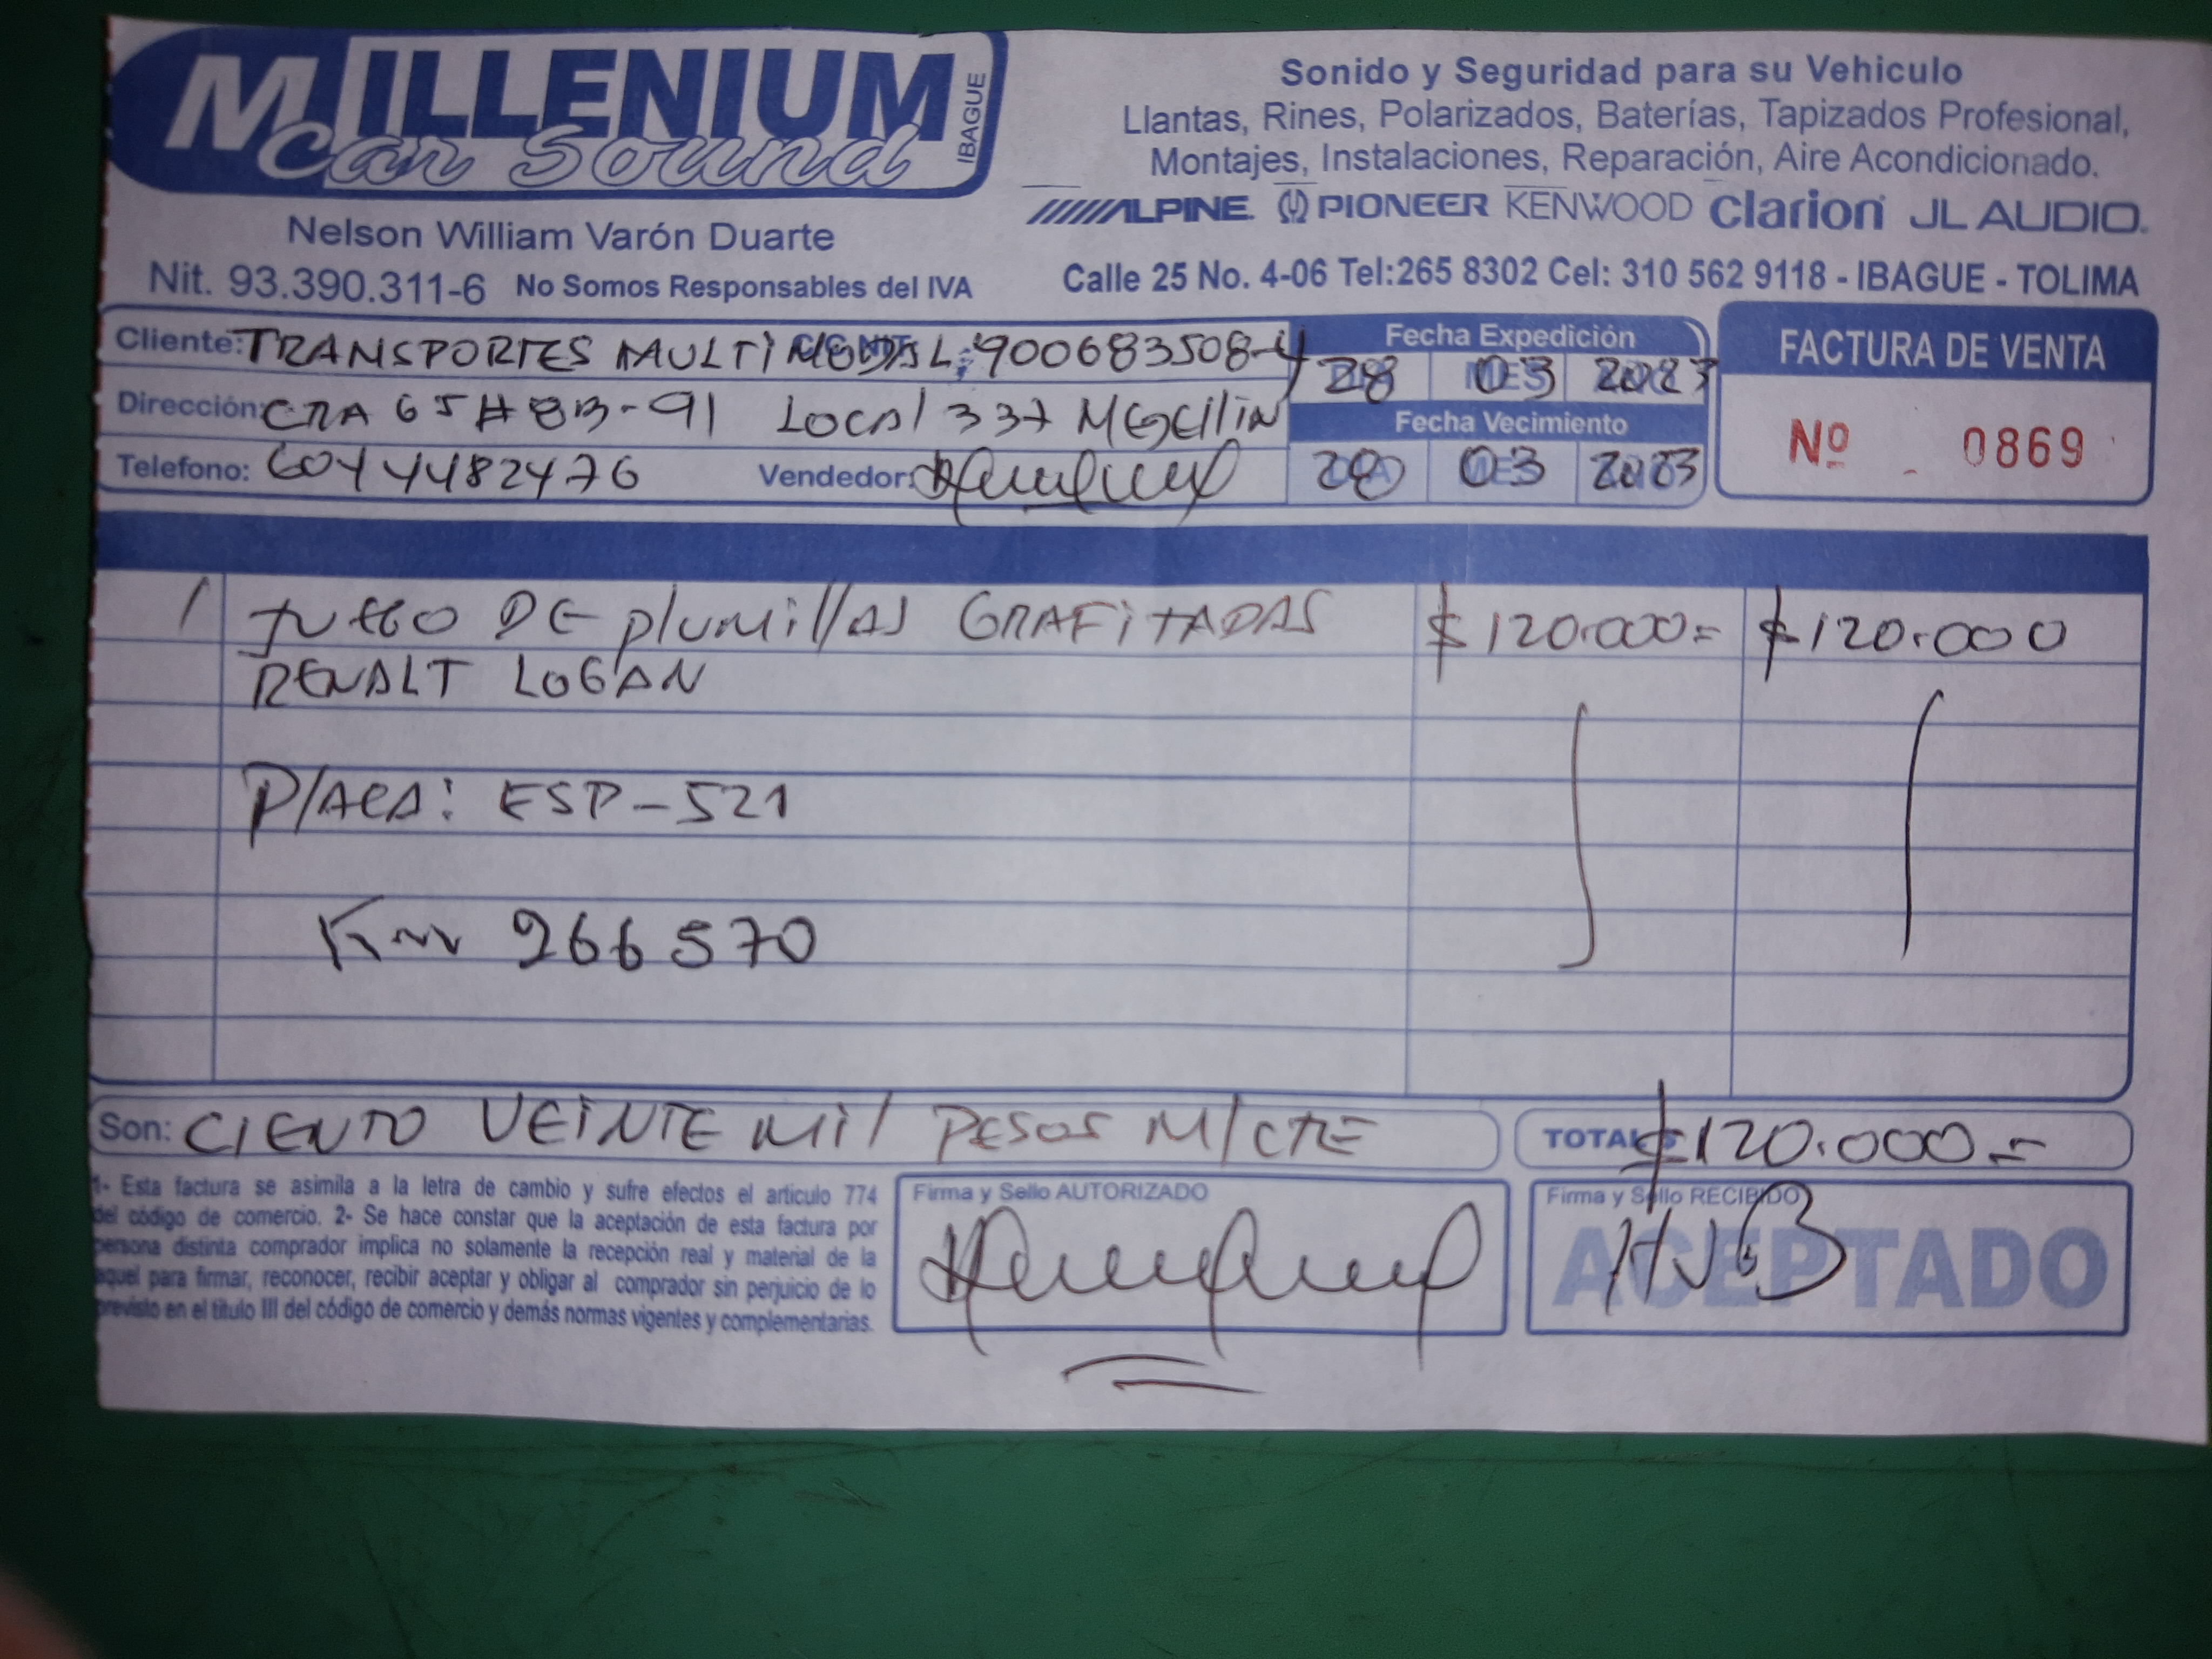 MILLENIUM
Car Sound
IBAGUE
Nelson William Varón Duarte
Nit. 93.390.311-6 No Somos Responsables del IVA
Sonido y Seguridad para su Vehiculo
Llantas, Rines, Polarizados, Baterías, Tapizados Profesional,
Montajes, Instalaciones, Reparación, Aire Acondicionado.
ALPINE. PIONEER KENWOOD clarion JL AUDIO.
Calle 25 No. 4-06 Tel:265 8302 Cel: 310 562 9118 - IBAGUE - TOLIMA
Cliente: TRANSPORTES MULTIMODAL 900683508-4
Dirección: CRA 65 # 8B-91 LOCAl 337 MEDEllIN
Telefono: 6044482476 Vendedor:
Fecha Expedición
28 03 2023
Fecha Vecimiento
28 03 2023
FACTURA DE VENTA
Nº 0869
1 JUEGO DE plUMillAS GRAFiTADAS $120.000= $120.000
RENALT LOGAN
PlACA: ESP-521
Km 266570
Son: CIENTO VEINTE Mil PESOS M/CTE
TOTAL $ $120.000=
1- Esta factura se asimila a la letra de cambio y sufre efectos el articulo 774
del código de comercio. 2- Se hace constar que la aceptación de esta factura por
persona distinta comprador implica no solamente la recepción real y material de la
aquel para firmar, reconocer, recibir aceptar y obligar al comprador sin perjuicio de lo
previsto en el titulo III del código de comercio y demás normas vigentes y complementarias.
Firma y Sello AUTORIZADO
Firma y Sello RECIBIDO
ACEPTADO